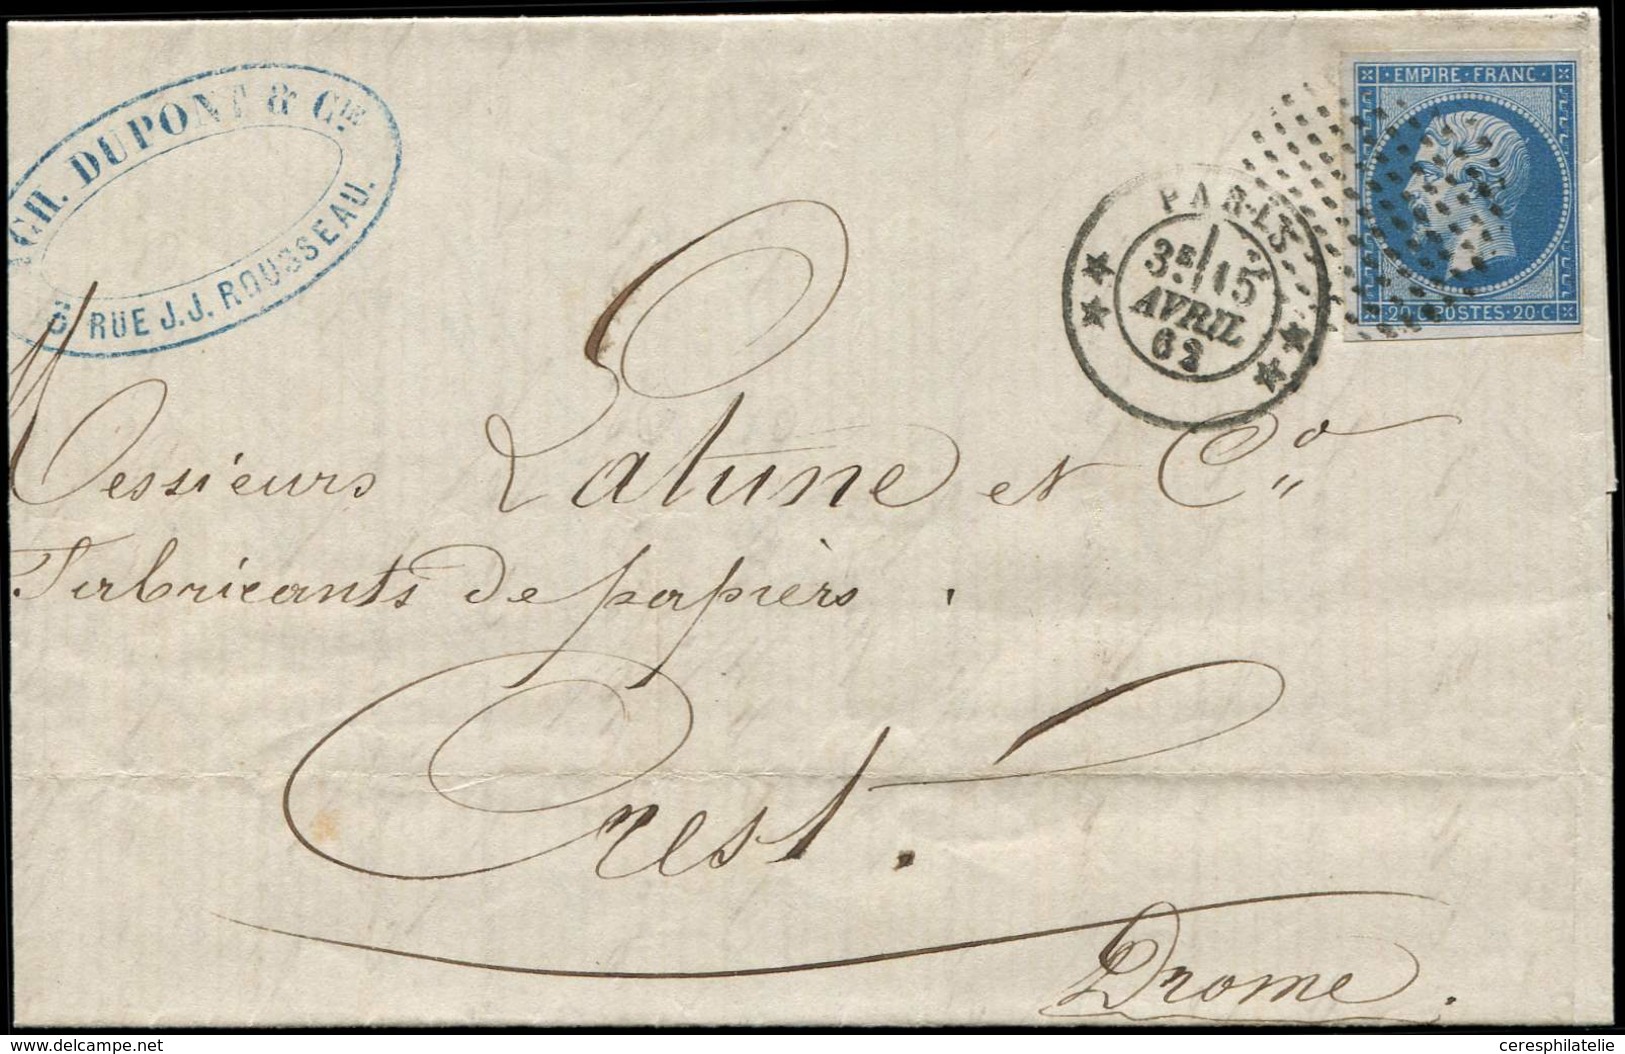 CH. DUPONT & CIE
RUE J.J. ROUSSEAU.
EMPIRE·FRANC
20 C POSTES·20 C
PARIS
3E 15
AVRIL
62
Messieurs Latune et Co
Fabricants de papièrs.
Crest.
Drome.
www.delcampe.net
ceresphilatelie